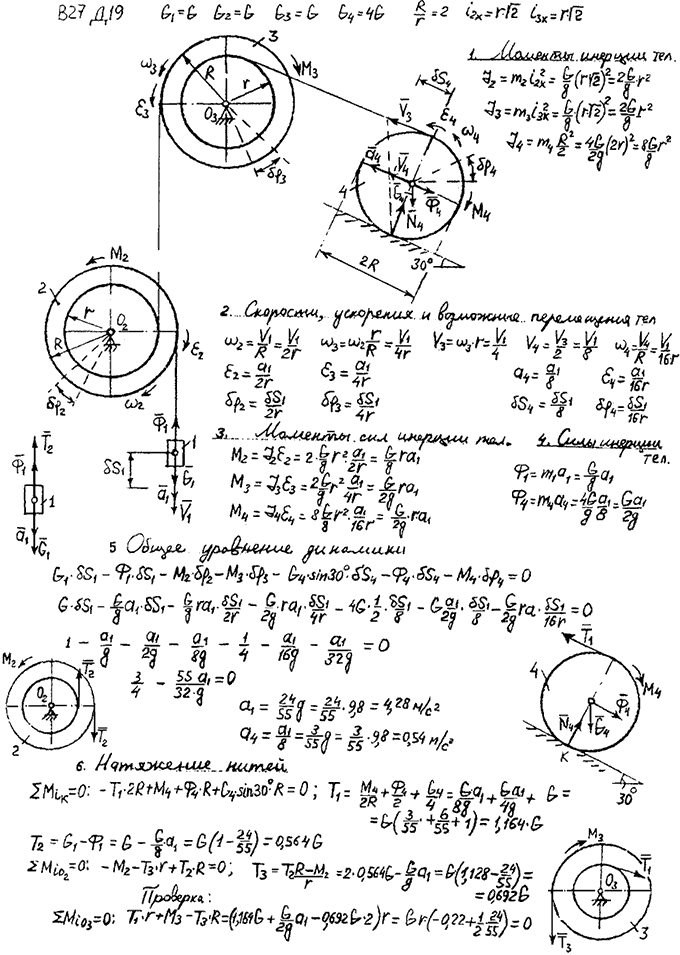 В27 Д19 G₁=G G₂=G G₃=G G₄=4G R/r=2 i₂ₓ=r√2 i₃ₓ=r√2
1. Моменты инерции тел.
J₂=m₂i₂ₓ²=G/g(r√2)²=2G/g r²
J₃=m₃i₃ₓ²=G/g(r√2)²=2G/g r²
J₄=m₄R²/2=4G/2g(2r)²=8G/g r²
3
ω₃ R r M₃
ε₃ O₃
δφ₃
δS₄
V̄₃ ε₄ ω₄
ā₄ V̄₄ δφ₄
4 Ḡ₄ Φ̄₄ M₄
N̄₄
2R 30°
M₂
2 r O₂
R ε₂
δφ₂ ω₂
Φ̄₁
1
δS₁ Ḡ₁
ā₁
V̄₁
T̄₂
Φ̄₁
1
ā₁ Ḡ₁
2. Скорости, ускорения и возможные перемещения тел
ω₂=V₁/R=V₁/2r ω₃=ω₂r/R=V₁/4r V₃=ω₃·r=V₁/4 V₄=V₃/2=V₁/8 ω₄=V₄/R=V₁/16r
ε₂=a₁/2r ε₃=a₁/4r a₄=a₁/8 ε₄=a₁/16r
δφ₂=δS₁/2r δφ₃=δS₁/4r δS₄=δS₁/8 δφ₄=δS₁/16r
3. Моменты сил инерции тел.
M₂=J₂ε₂=2·G/g r²·a₁/2r=G/g ra₁
M₃=J₃ε₃=2G/g r²·a₁/4r=G/2g ra₁
M₄=J₄ε₄=8G/g r²·a₁/16r=G/2g·ra₁
4. Силы инерции тел.
Φ₁=m₁a₁=G/g a₁
Φ₄=m₄a₄=4G/g a₁/8=Ga₁/2g
5 Общее уравнение динамики
G₁·δS₁−Φ₁·δS₁−M₂·δφ₂−M₃·δφ₃−G₄·sin30°·δS₄−Φ₄·δS₄−M₄·δφ₄=0
G·δS₁−G/g a₁·δS₁−G/g ra₁·δS₁/2r−G/2g·ra₁·δS₁/4r−4G·1/2·δS₁/8−G a₁/2g·δS₁/8−G/2g ra·δS₁/16r=0
1−a₁/g−a₁/2g−a₁/8g−1/4−a₁/16g−a₁/32g=0
3/4−55a₁/32·g=0
a₁=24/55 g=24/55·9,8=4,28 м/с²
a₄=a₁/8=3/55 g=3/55·9,8=0,54 м/с²
M₂ T̄₂
O₂
2 T̄₂
T̄₁
4 M₄
Φ̄₄
N̄₄ Ḡ₄
K 30°
6. Натяжение нитей
ΣMiₖ=0: −T₁·2R+M₄+Φ₄·R+G₄·sin30°R=0; T₁=M₄/2R+Φ₄/2+G₄/4=Ga₁/8g+Ga₁/4g+G=
=G(3/55+6/55+1)=1,164·G
T₂=G₁−Φ₁=G−G/g a₁=G(1−24/55)=0,564G
ΣMiₒ₂=0: −M₂−T₃·r+T₂·R=0; T₃=T₂R−M₂/r=2·0,564G−G/g a₁=G(1,128−24/55)=
=0,692G
Проверка:
ΣMiₒ₃=0: T₁·r+M₃−T₃·R=(1,164G+G/2g a₁−0,692G·2)r=Gr(−0,22+1/2 24/55)=0
M₃
T̄₁
O₃
T̄₃ 3